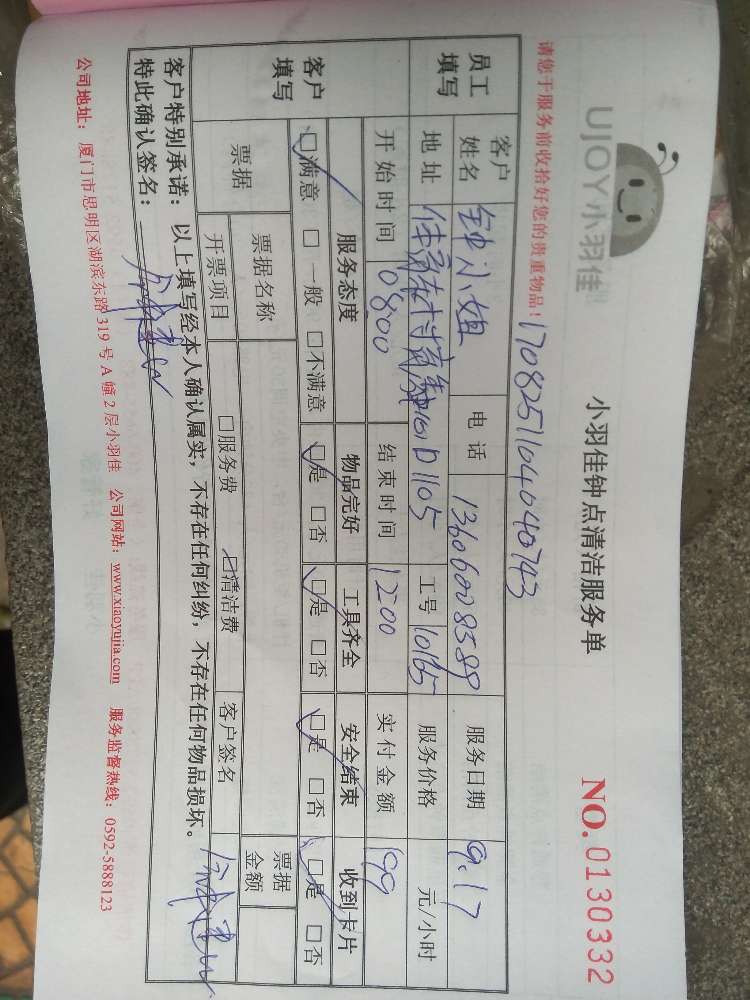 UJOY小羽佳
小羽佳钟点清洁服务单
NO.0130332
请您于服务前收拾好您的贵重物品! 1708251104040743
员工填写 客户姓名 钟小姐 电话 13606008589 服务日期 9.17
地址 D1105 工号 10165 服务价格 元/小时
开始时间 0800 结束时间 1200 实付金额 199
客户填写 服务态度 物品完好 工具齐全 安全结束 收到卡片
□满意 □一般 □不满意 □是 □否 □是 □否 □是 □否 □是 □否
票据 票据名称 票据金额
开票项目 □服务费 □清洁费 客户签名
客户特别承诺：以上填写经本人确认属实，不存在任何纠纷，不存在任何物品损坏。
特此确认签名：
公司地址：厦门市思明区湖滨东路319号A幢2层小羽佳 公司网站：www.xiaoyujia.com 服务监督热线：0592-5888123